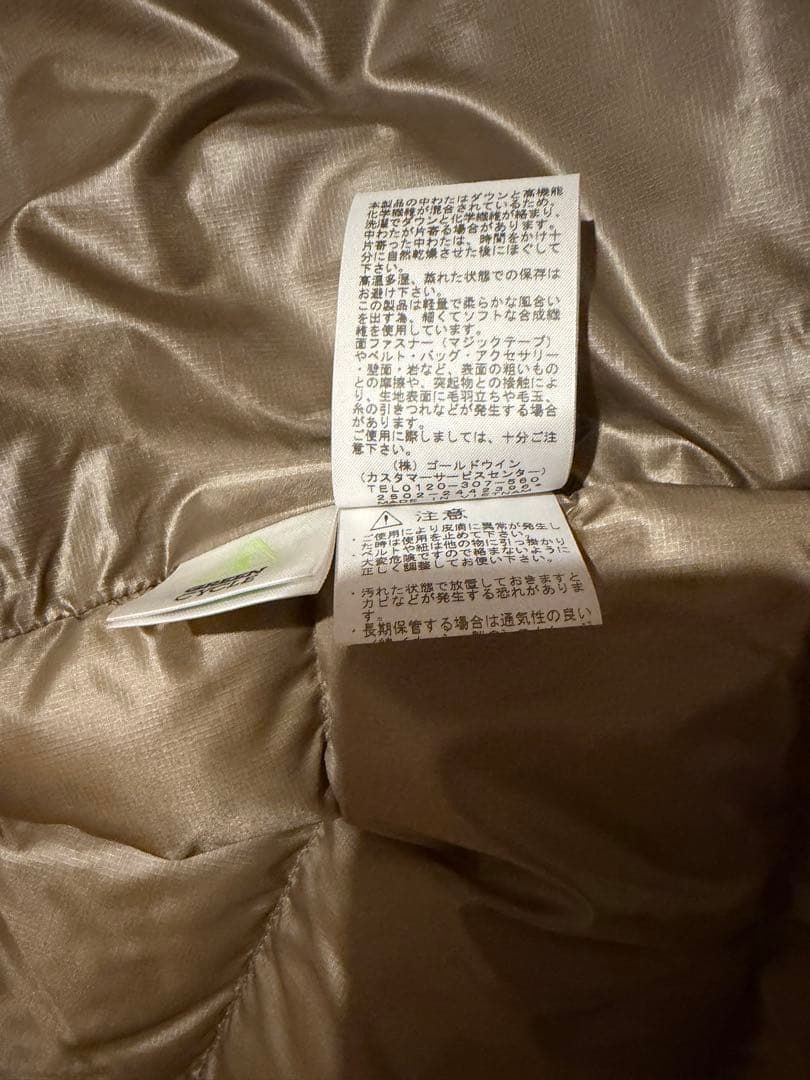 本製品の中わたはダウンと高機能
化学繊維が混合されているため、
洗濯でダウンと化学繊維が絡まり、
中わたが片寄る場合があります。
片寄った中わたは、時間をかけ十
分に自然乾燥させた後にほぐして
下さい。
高温多湿、蒸れた状態での保存は
お避け下さい。
この製品は軽量で柔らかな風合い
を出す為、細くてソフトな合成繊
維を使用しています。
面ファスナー（マジックテープ）
やベルト・バッグ・アクセサリー
・壁面・岩など、表面の粗いもの
との摩擦や、突起物との接触によ
り、生地表面に毛羽立ちや毛玉、
糸の引きつれなどが発生する場合
があります。
ご使用に際しましては、十分ご注
意下さい。
（株）ゴールドウイン
（カスタマーサービスセンター）
TEL0120-307-560
2502-2442396*
MADE IN VIETNAM
注意
・ご使用により皮膚に異常が発生し
た時は使用を止めて下さい。
・ベルトや紐は他の物に引っ掛かり
大変危険ですので絡まないように
正しく調整してお使い下さい。
・汚れた状態で放置しておきますと
カビなどが発生する恐れがありま
す。
・長期保管する場合は通気性の良い
GREEN
CYCLE